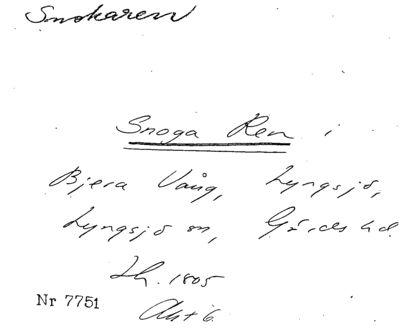 Snokaren
Snoga Ren i
Bjera Vång, Lyngsjö,
Lyngsjö sn, Gärds hd
Lh. 1805
Akt 6
Nr 7751